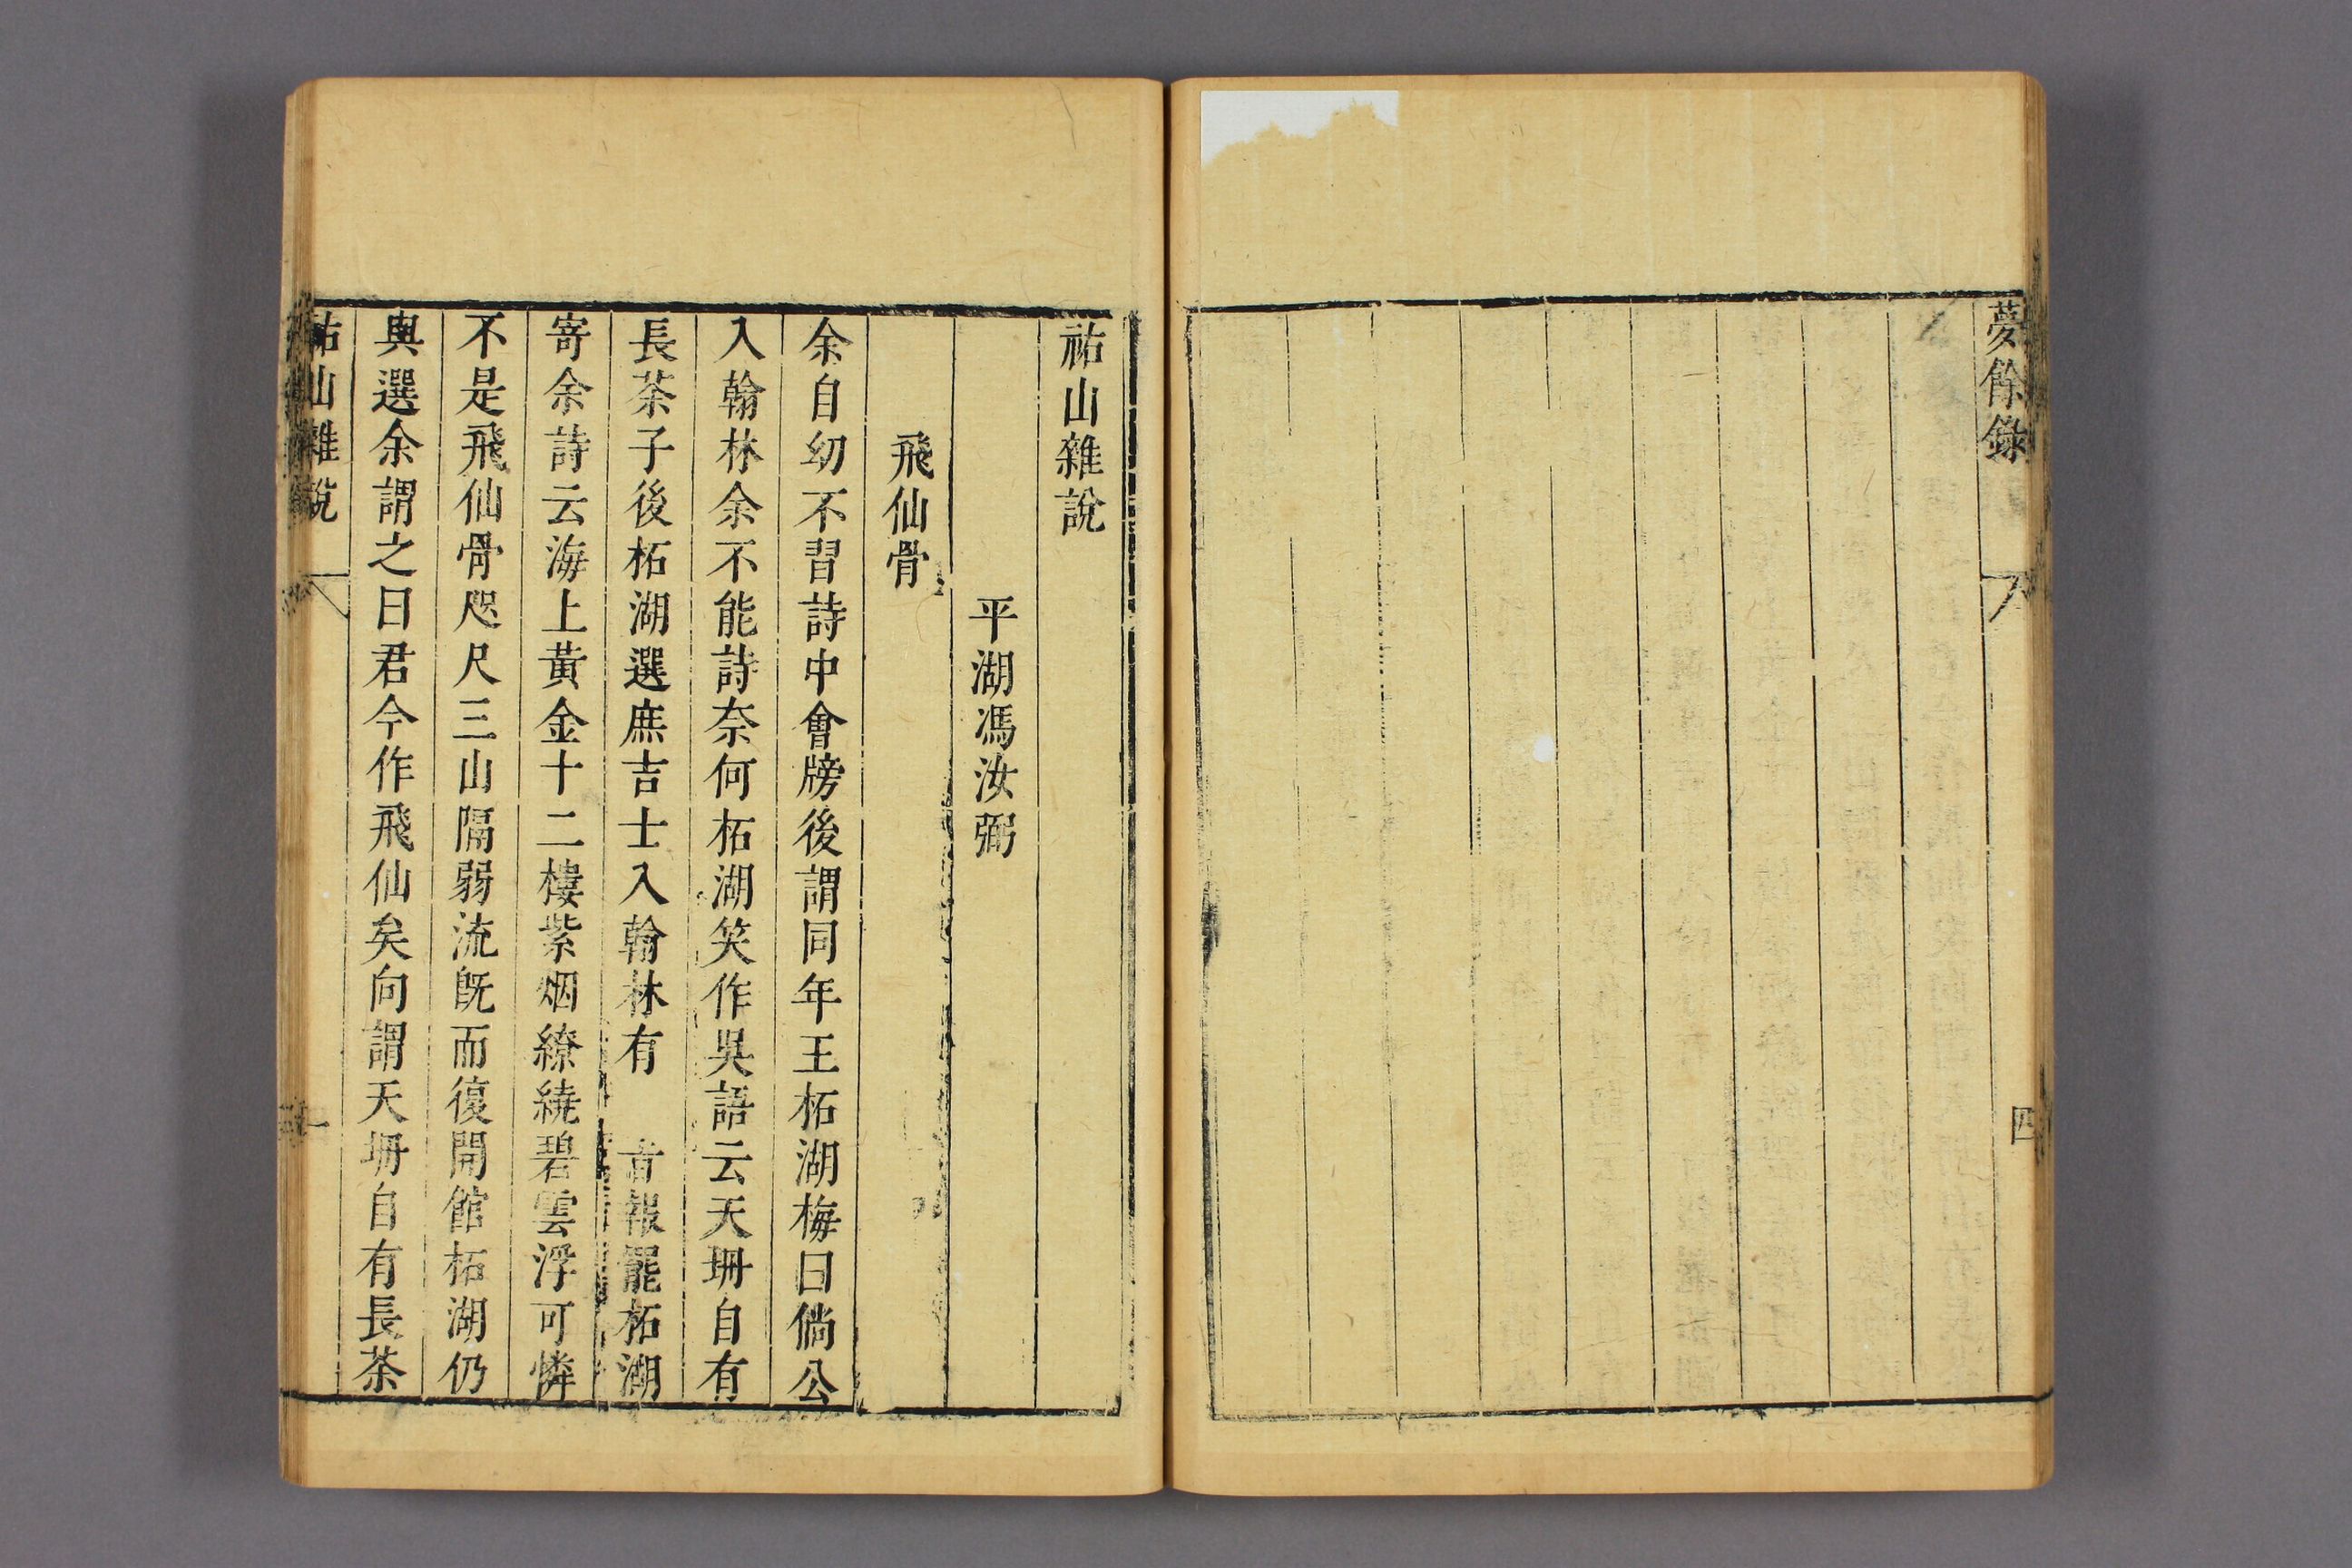 夢餘錄
四
祐山雜說
平湖馮汝弼
飛仙骨
余自幼不習詩中會牓後謂同年王柘湖梅曰倘公
入翰林余不能詩奈何柘湖笑作吳語云天坍自有
長茶子後柘湖選庶吉士入翰林有　旨報罷柘湖
寄余詩云海上黃金十二樓紫烟繚繞碧雲浮可憐
不是飛仙骨咫尺三山隔弱流旣而復開館柘湖仍
與選余謂之曰君今作飛仙矣向謂天坍自有長茶
祐山雜說
一